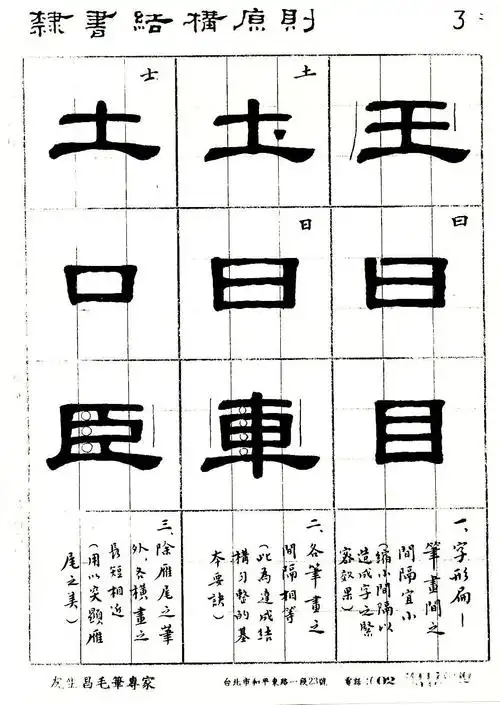 隸書結構原則
3
王
土
土
士
士
曰
曰
日
日
口
目
車
臣
一、字形扁—
筆畫間之
間隔宜小
(縮小間隔以
造成字之緊
密效果)
二、各筆畫之
間隔相等
(此為達成結
構勻整的基
本要訣)
三、除雁尾之筆
外各橫畫之
長短相近
(用以突顯雁
尾之美)
友生昌毛筆專家
台北市和平東路一段23號
電話:(02